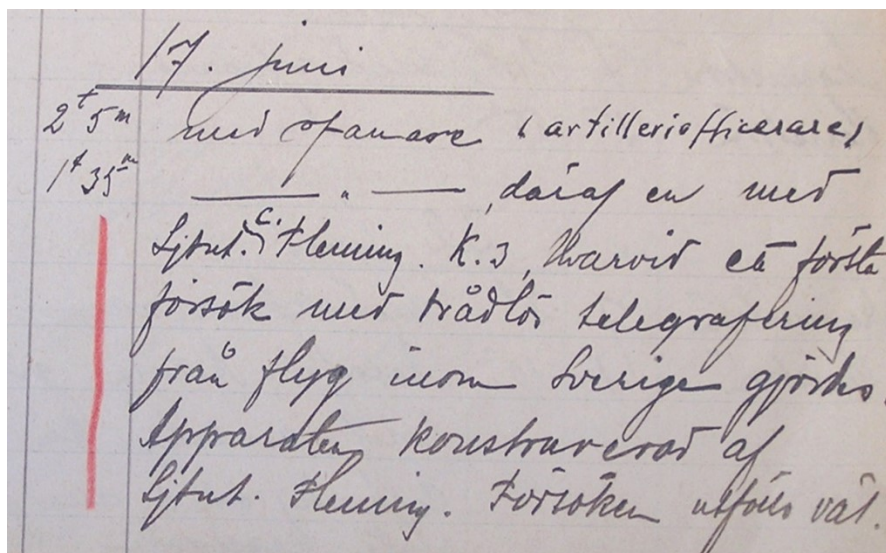 17. juni
2 t 5 m med spanare (artilleriofficerare)
1 t 35 m — " — , däraf en med
Löjtnt. C. Fleming. K.3, Hvarvid ett första
försök med trådlös telegrafering
från flyg inom Sverige gjordes.
Apparaten konstruerad af
Löjtnt. Fleming. Försöken utföllo väl.